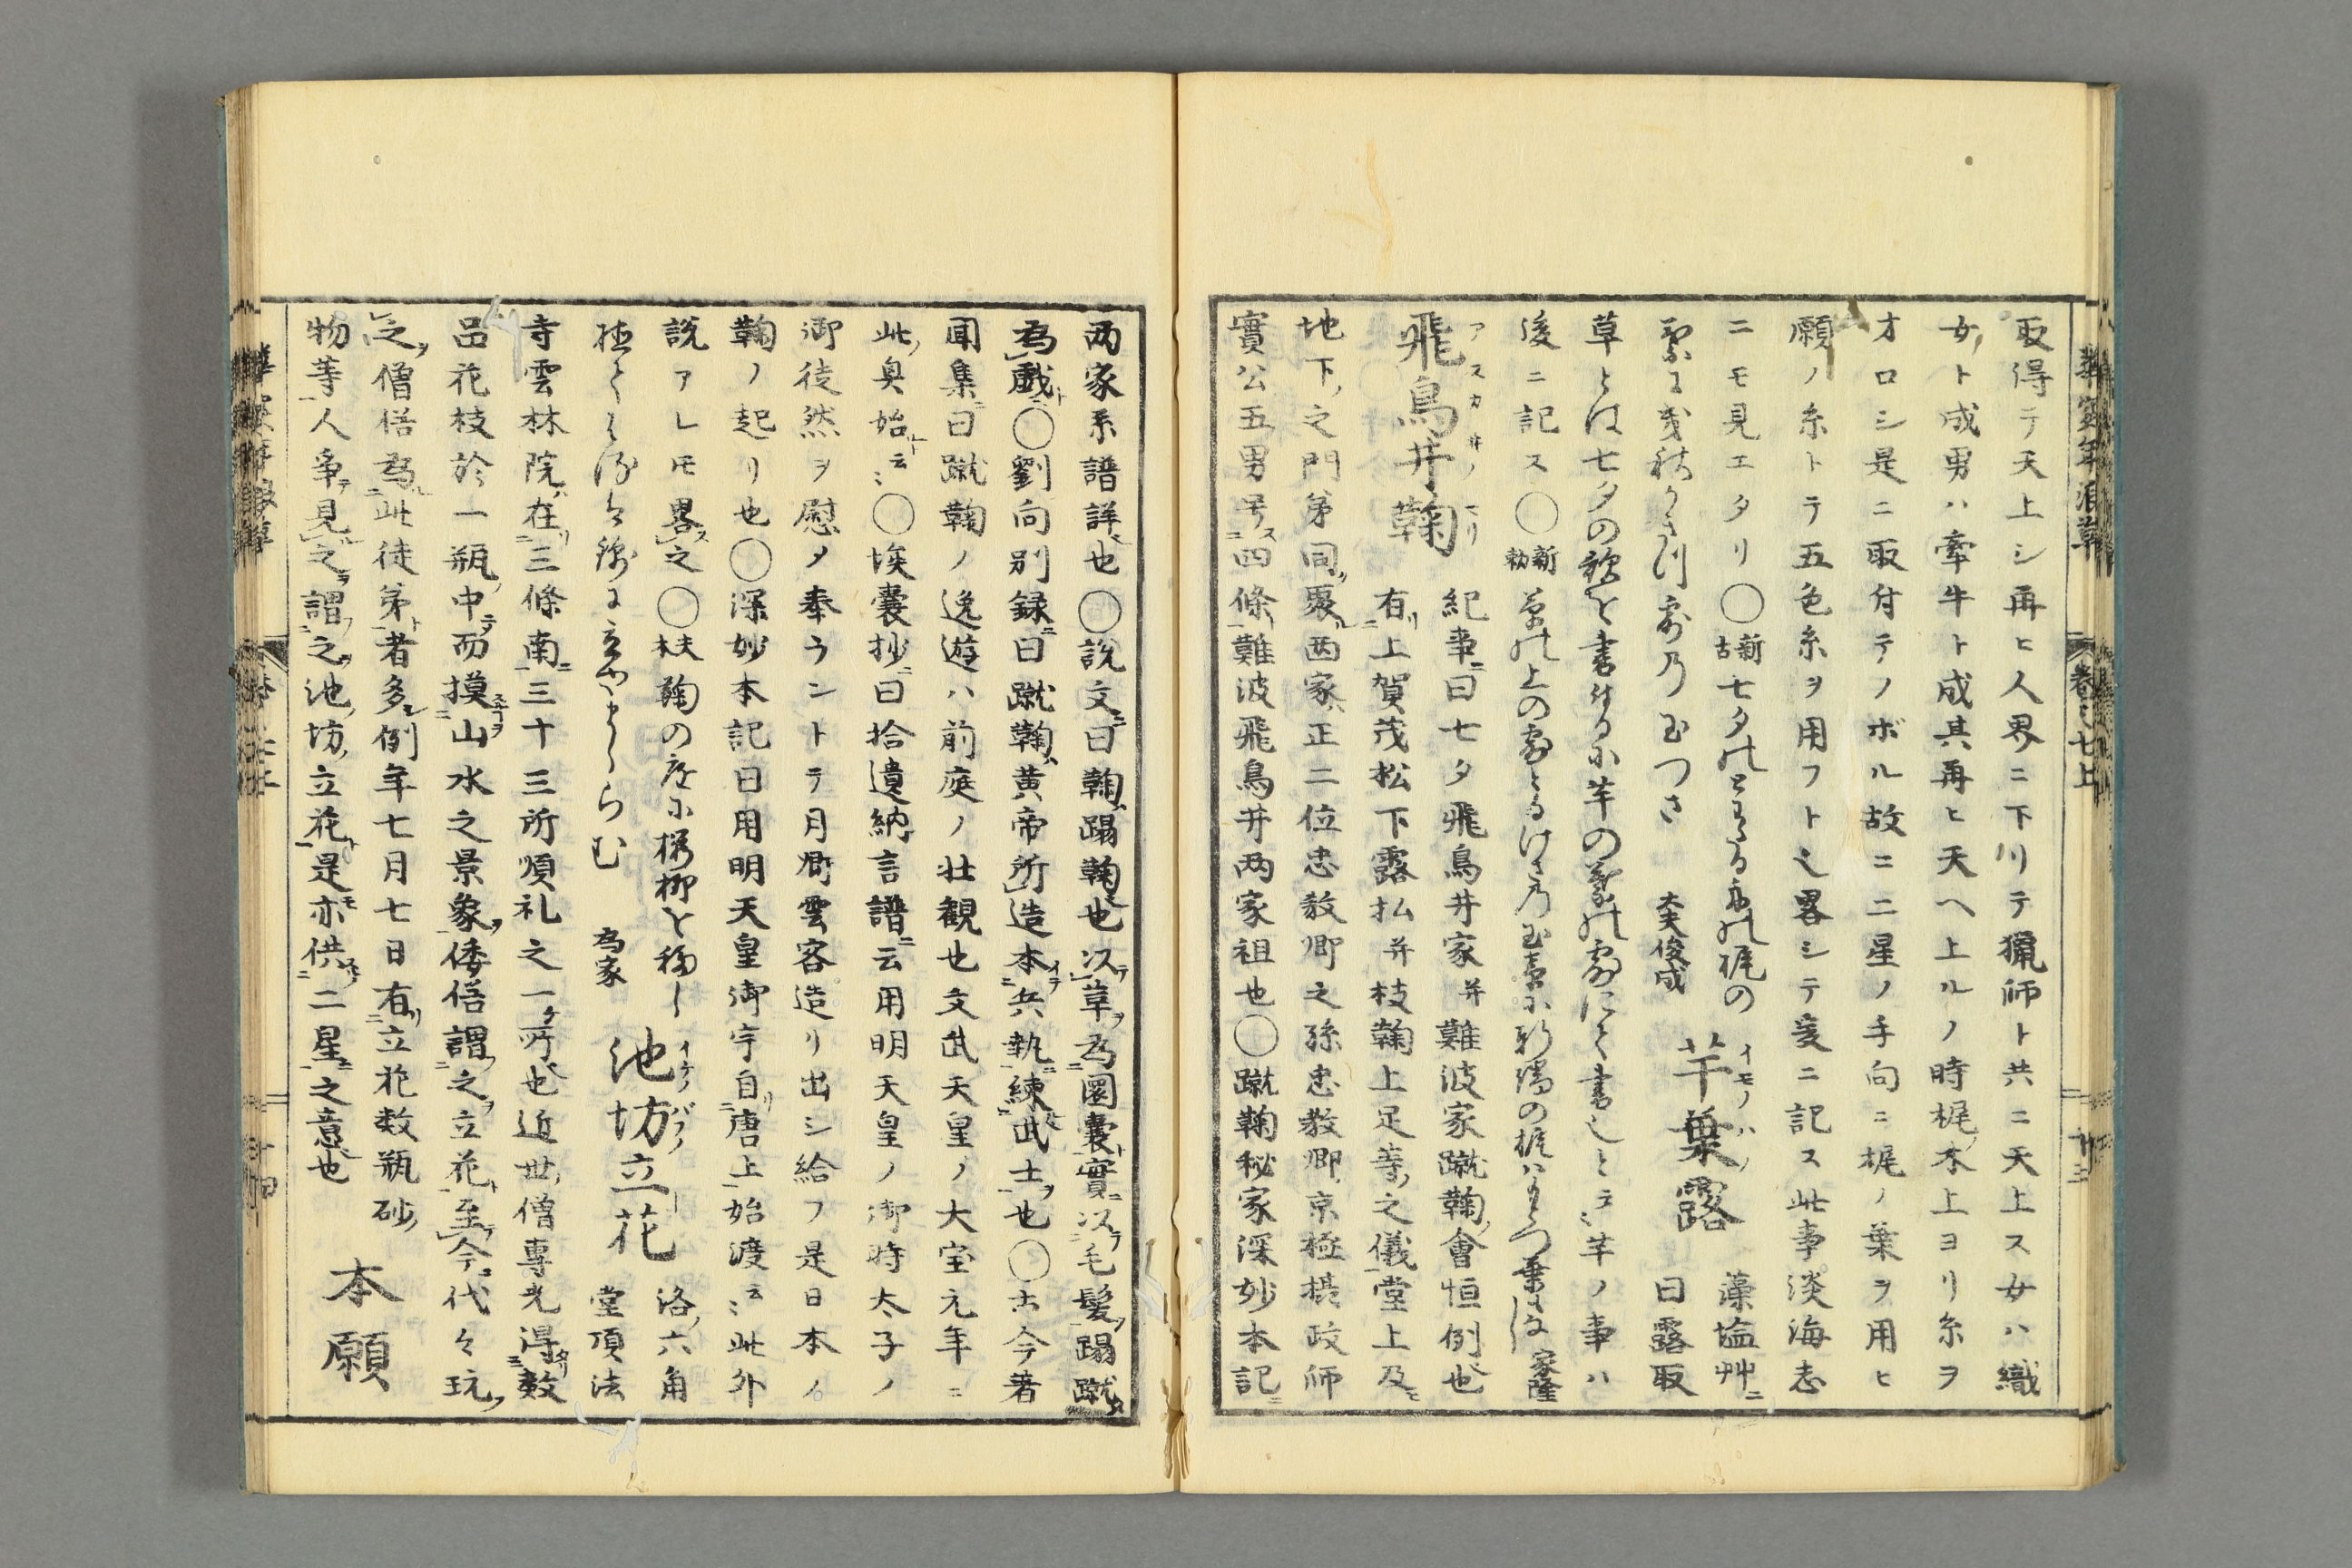 取得テ天上シ再ヒ人界ニ下リテ獵師ト共ニ天上ス女ハ織
女ト成男ハ牽牛ト成其再ヒ天ヘ上ルノ時梶ノ木上ヨリ糸ヲ
オロシ是ニ取付テノボル故ニ二星ノ手向ニ梶ノ葉ヲ用ヒ
願ノ糸トテ五色糸ヲ用フト也畧シテ爰ニ記ス此事淡海志
ニモ見エタリ〇新古七夕のとわたる舟の梶の
葉に幾秋かきつ露の玉つさ 太夫俊成
芋葉露 イモノハノ
藻塩艸ニ
曰露取
草とは七夕の歌を書けるに芋の葉の露にて書也と云々芋ノ事ハ
後ニ記ス〇新勅 草の上の露とるけさの玉章に 家隆
飛鳥井鞠 アスカ井ノマリ
紀事ニ曰七夕飛鳥井家并難波家蹴鞠ノ會恒例也
有上賀茂松下露払并枝鞠上足等之儀堂上及
地下之門弟同聚両家正二位忠教卿之孫忠教卿京極摂政師
實公五男号四條難波飛鳥井両家祖也〇蹴鞠秘家深妙本記ニ
両家系譜詳也〇説文曰鞠蹋鞠也以革為圜囊實以毛髪蹋蹴
為戯〇劉向別録曰蹴鞠黄帝所造本兵執練武士也〇古今著
聞集曰蹴鞠ノ逸遊ハ前庭ノ壮観也文武天皇ノ大宝元年ニ
此ノ奥始云々〇埃囊抄曰拾遺納言譜云用明天皇ノ御時太子ノ
御徒然ヲ慰メ奉ラントテ月卿雲客造リ出シ給フ是日本ノ
鞠ノ起リ也〇深妙本記曰用明天皇御宇自唐上始渡云々此外
説アレモ畧之〇夫木 鞠の庭に桜柳を移し
為家
池坊立花 イケノバウノ
洛ノ六角
堂頂法
寺雲林院在三條南三十三所順礼之一ケ所也近世僧専光得数
品花枝於一瓶中而摸山水之景象倭俗謂之立花至今代々玩
之僧俗為此徒弟者多例年七月七日有立花数瓶砂
物等人争見之謂之池坊立花是亦供二星之意也
本願